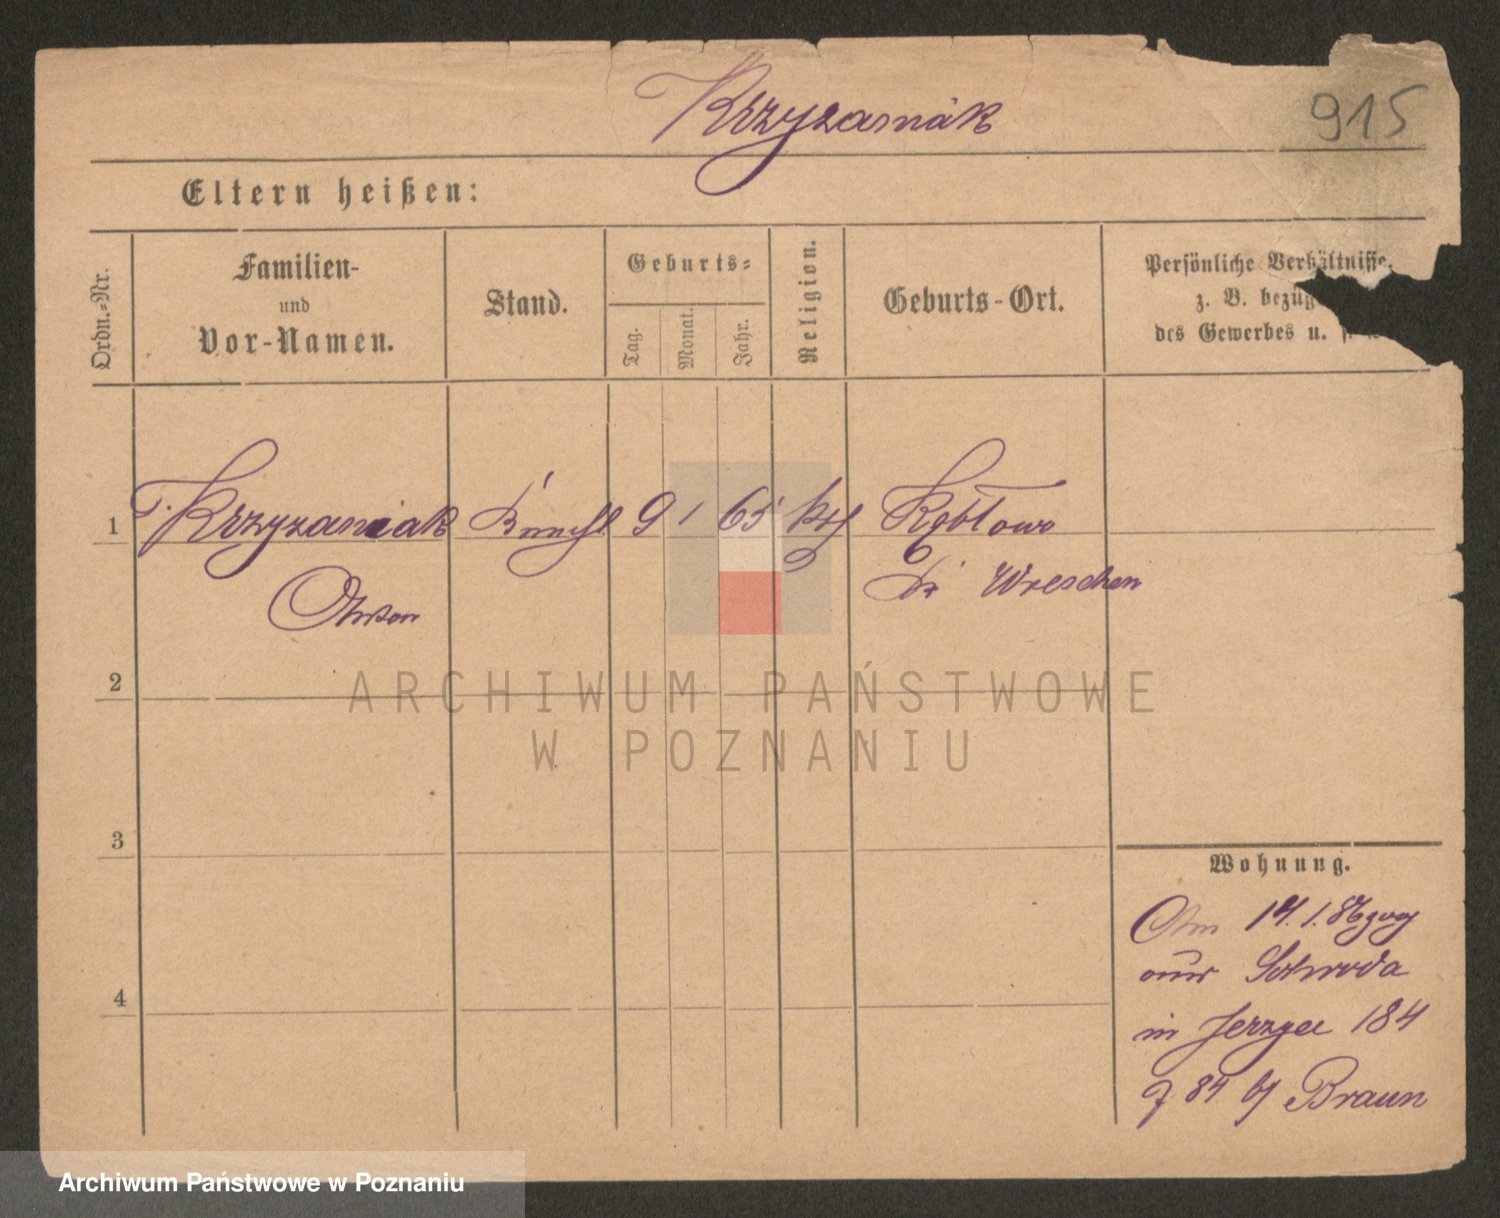 Krzyzaniak
915
Eltern heißen:
Ordn.-Nr.
Familien-
und
Vor-Namen.
Stand.
Geburts-
Tag.
Monat.
Jahr.
Religion.
Geburts-Ort.
Persönliche Verhältnisse.
z. B. bezüg
des Gewerbes u.
1
Krzyzaniak
9
1
65
kth
Kębłowo
Wreschen
Anton
2
ARCHIWUM PAŃSTWOWE
W POZNANIU
3
Wohnung.
14. 1. 86
4
in Jerzyce 184
84 Braun
Archiwum Państwowe w Poznaniu